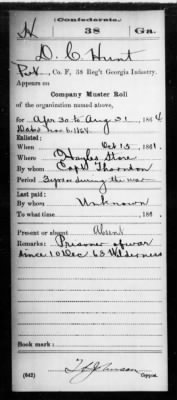 H Confederate. 38 Ga.
D. C. Hunt
Pvt, Co. F, 38 Reg't Georgia Infantry.
Appears on
Company Muster Roll
of the organization named above,
for Apr 30 to Aug 31, 1864
Dated Nov 6, 1864
Enlisted:
When Oct 15, 1861.
Where Store
By whom Capt Thornton
Period 3 years during the war
Last paid:
By whom Unknown
To what time , 186 .
Present or absent Absent
Remarks: Prisoner of war
since 10 63 Wilderness
Book mark:
(642) Copyist.